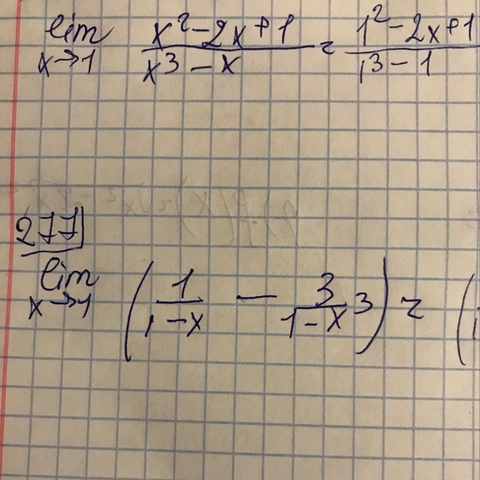 lim x→1 (x² - 2x + 1)/(x³ - x) = (1² - 2x + 1)/(1³ - 1)
277
lim x→1 (1/(1-x) - 3/(1-x³)) = (